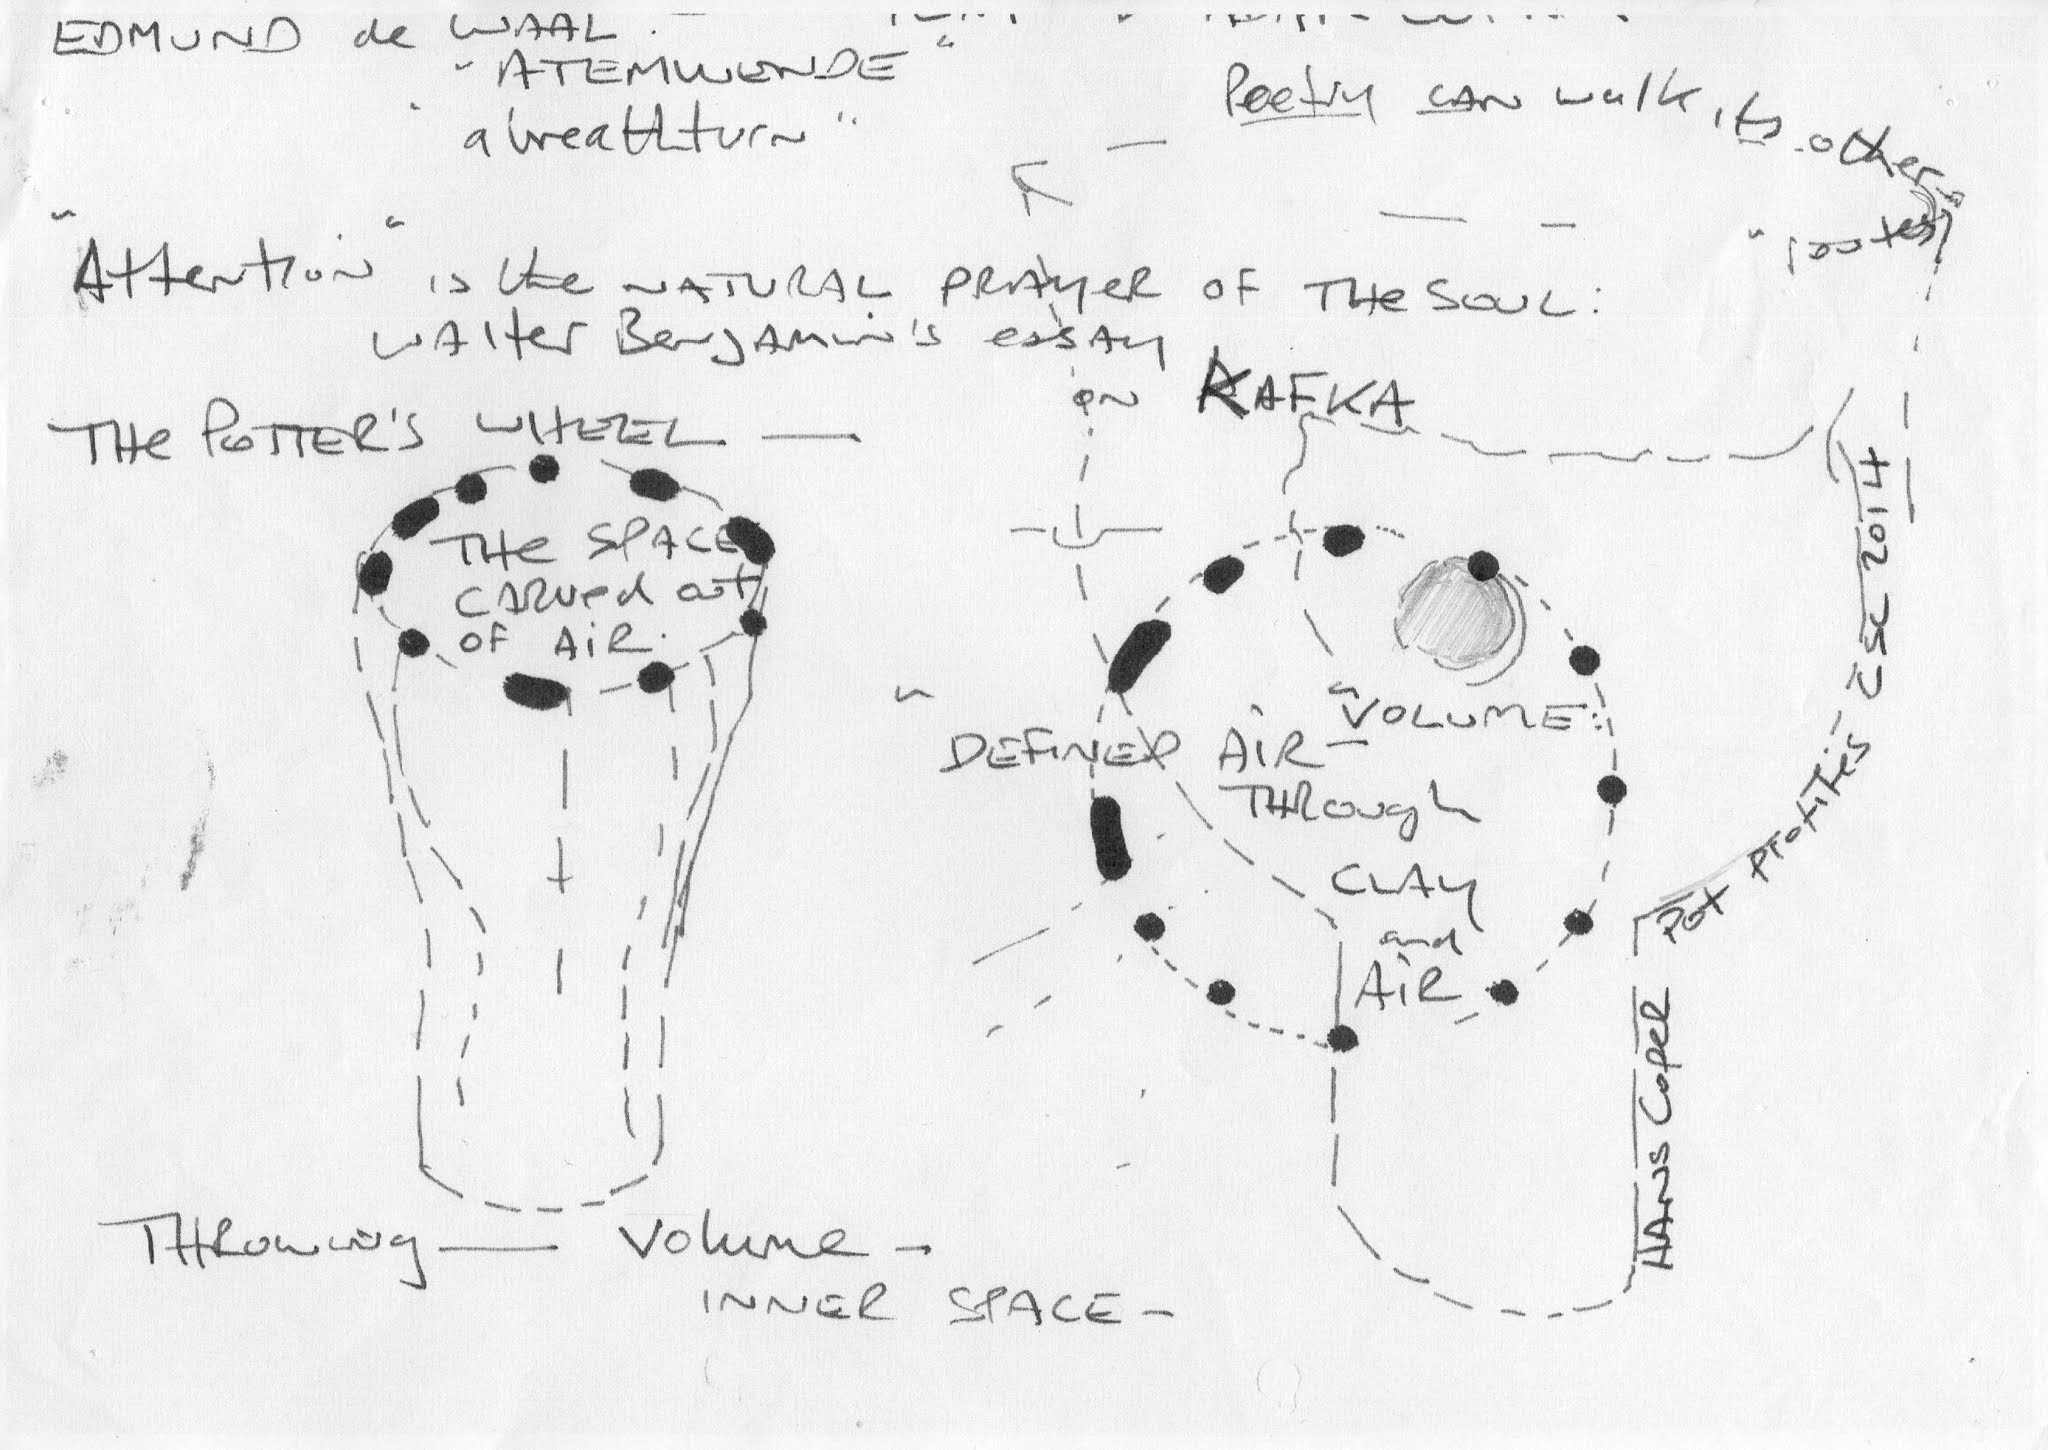 EDMUND de WAAL. -
"ATEMWENDE"
"a breathturn"
Poetry CAN walk its other
"routes"
"Attention" is the NATURAL PRAYER OF THE SOUL:
WALTER BENJAMIN'S essay
on KAFKA
THE POTTER'S WHEEL —
THE SPACE
CARVED out
OF AIR.
"VOLUME:
"DEFINED AIR -
THROUGH
CLAY
and
AIR
HANS Coper
Pot
CSC 2014
THROWING — Volume -
INNER SPACE -